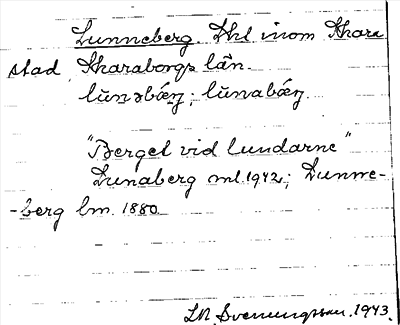 Lunneberg. Thl inom Skara
stad, Skaraborgs län.
lŭnəbǽŋ; lŭnabǽŋ.
"Berget vid lundarne"
Lunaberg ml. 1942; Lunne-
-berg lm. 1880
Svenungsson. 1943.